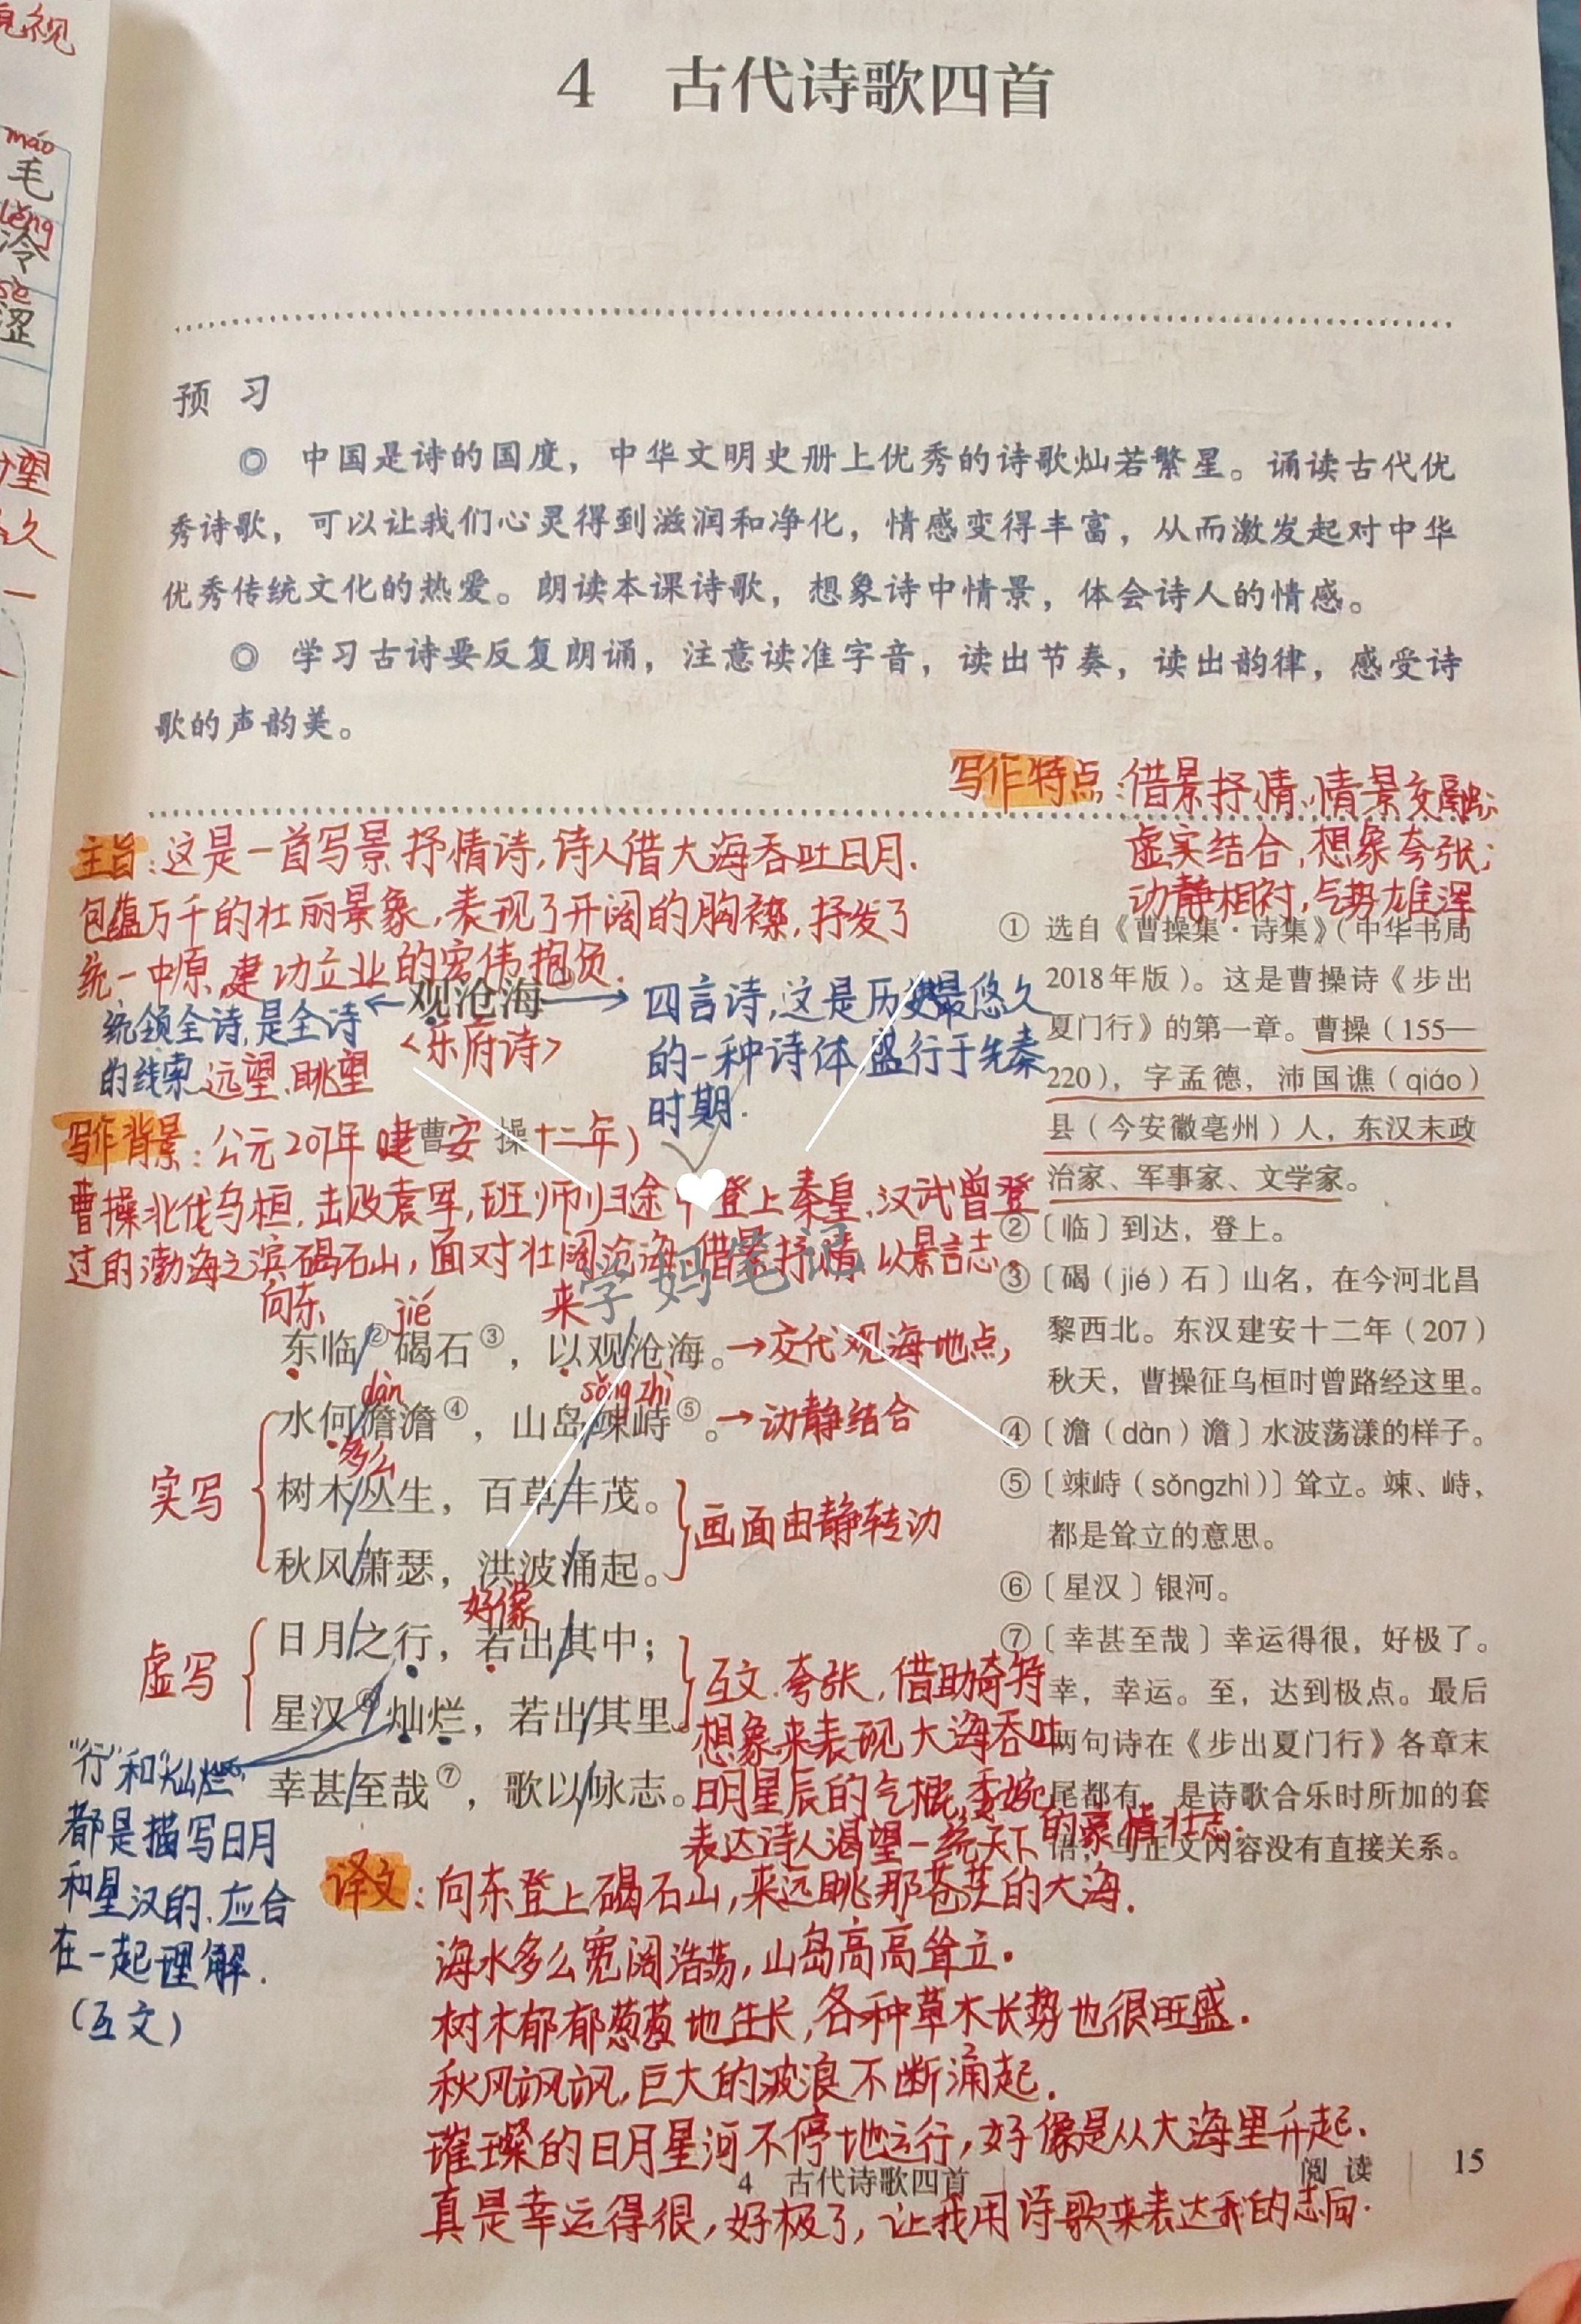 觅视
máo
毛
lěng
冷
sè
涩
久
一
4 古代诗歌四首
预 习
◎ 中国是诗的国度，中华文明史册上优秀的诗歌灿若繁星。诵读古代优
秀诗歌，可以让我们心灵得到滋润和净化，情感变得丰富，从而激发起对中华
优秀传统文化的热爱。朗读本课诗歌，想象诗中情景，体会诗人的情感。
◎ 学习古诗要反复朗诵，注意读准字音，读出节奏，读出韵律，感受诗
歌的声韵美。
写作特点：借景抒情、情景交融；
虚实结合，想象夸张；
动静相衬，气势雄浑
主旨：这是一首写景抒情诗，诗人借大海吞吐日月.
包蕴万千的壮丽景象，表现了开阔的胸襟，抒发了
统一中原，建功立业的宏伟抱负.
观沧海①
统领全诗，是全诗
的线索 远望、眺望
<乐府诗>
四言诗，这是历史最悠久
的一种诗体 盛行于先秦
时期.
曹 操
写作背景：公元207年 建安十二年）
曹操北伐乌桓，击败袁军，班师归途中登上秦皇、汉武曾登
过的渤海之滨碣石山，面对壮阔沧海 借景抒情 以景言志.
学妈笔记
向东 jié 来
东临②碣石③，以观沧海。→交代观海地点，
dàn sǒng zhì
水何澹澹④，山岛竦峙⑤。→动静结合
多么
实写
树木丛生，百草丰茂。
画面由静转动
秋风萧瑟，洪波涌起。
好像
日月之行，若出其中；
虚写
星汉⑥灿烂，若出其里。
幸甚至哉⑦，歌以咏志。
互文、夸张，借助奇特
想象来表现大海吞吐
日月星辰的气概，委婉
表达诗人渴望一统天下的豪情壮志.
"行"和"灿烂"
都是描写日月
和星汉的，应合
在一起理解.
（互文）
① 选自《曹操集·诗集》（中华书局
2018年版）。这是曹操诗《步出
夏门行》的第一章。曹操（155—
220），字孟德，沛国谯（qiáo）
县（今安徽亳州）人，东汉末政
治家、军事家、文学家。
②〔临〕到达，登上。
③〔碣（jié）石〕山名，在今河北昌
黎西北。东汉建安十二年（207）
秋天，曹操征乌桓时曾路经这里。
④〔澹（dàn）澹〕水波荡漾的样子。
⑤〔竦峙（sǒngzhì）〕耸立。竦、峙，
都是耸立的意思。
⑥〔星汉〕银河。
⑦〔幸甚至哉〕幸运得很，好极了。
幸，幸运。至，达到极点。最后
两句诗在《步出夏门行》各章末
尾都有，是诗歌合乐时所加的套
语，与正文内容没有直接关系。
译文：向东登上碣石山，来远眺那苍茫的大海.
海水多么宽阔浩荡，山岛高高耸立.
树木郁郁葱葱地生长，各种草木长势也很旺盛.
秋风飒飒，巨大的波浪不断涌起.
璀璨的日月星河不停地运行，好像是从大海里升起.
真是幸运得很，好极了，让我用诗歌来表达我的志向.
4 古代诗歌四首
阅 读 | 15